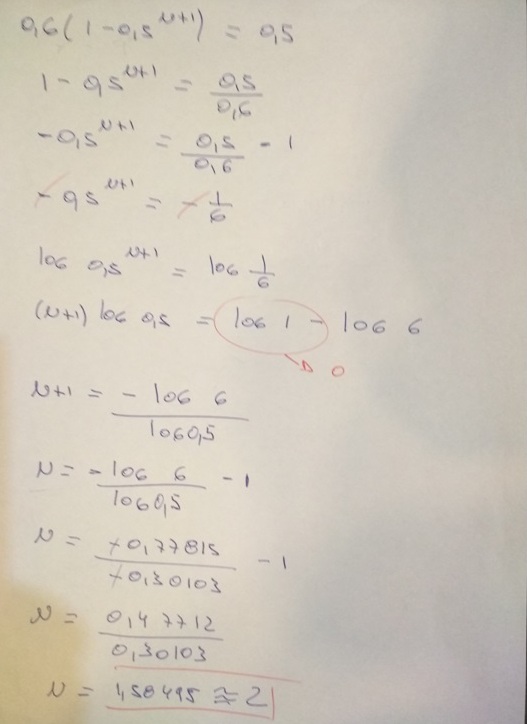 0,6(1-0,5^N+1) = 0,5
1-0,5^N+1 = 0,5/0,6
-0,5^N+1 = 0,5/0,6 - 1
-0,5^N+1 = -1/6
log 0,5^N+1 = log 1/6
(N+1) log 0,5 = log 1 - log 6
0
N+1 = - log 6 / log 0,5
N = -log 6 / log 0,5 - 1
N = -0,77815 / -0,30103 - 1
N = 0,47712 / 0,30103
N = 1,58495 ≅ 2